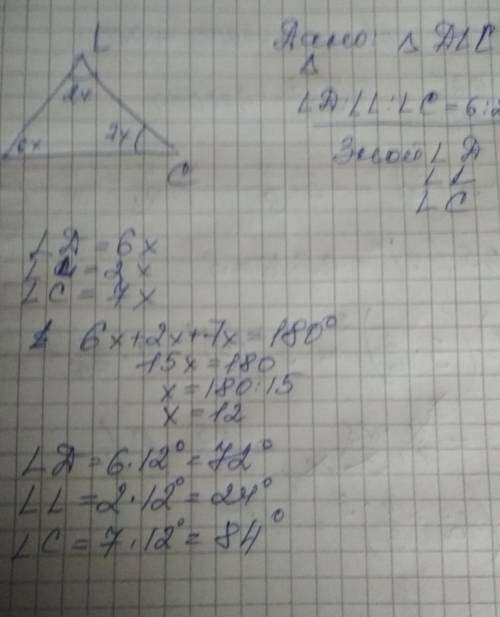 L
2x
6x
7x
C
Дано: △ ДLC
△
∠Д:∠L:∠C = 6:2
∠Д
∠L
∠C
∠Д = 6x
∠L = 2x
∠C = 7x
6x+2x+7x=180°
15x=180
x=180:15
x=12
∠Д=6·12°=72°
∠L=2·12°=24°
∠C=7·12°=84°